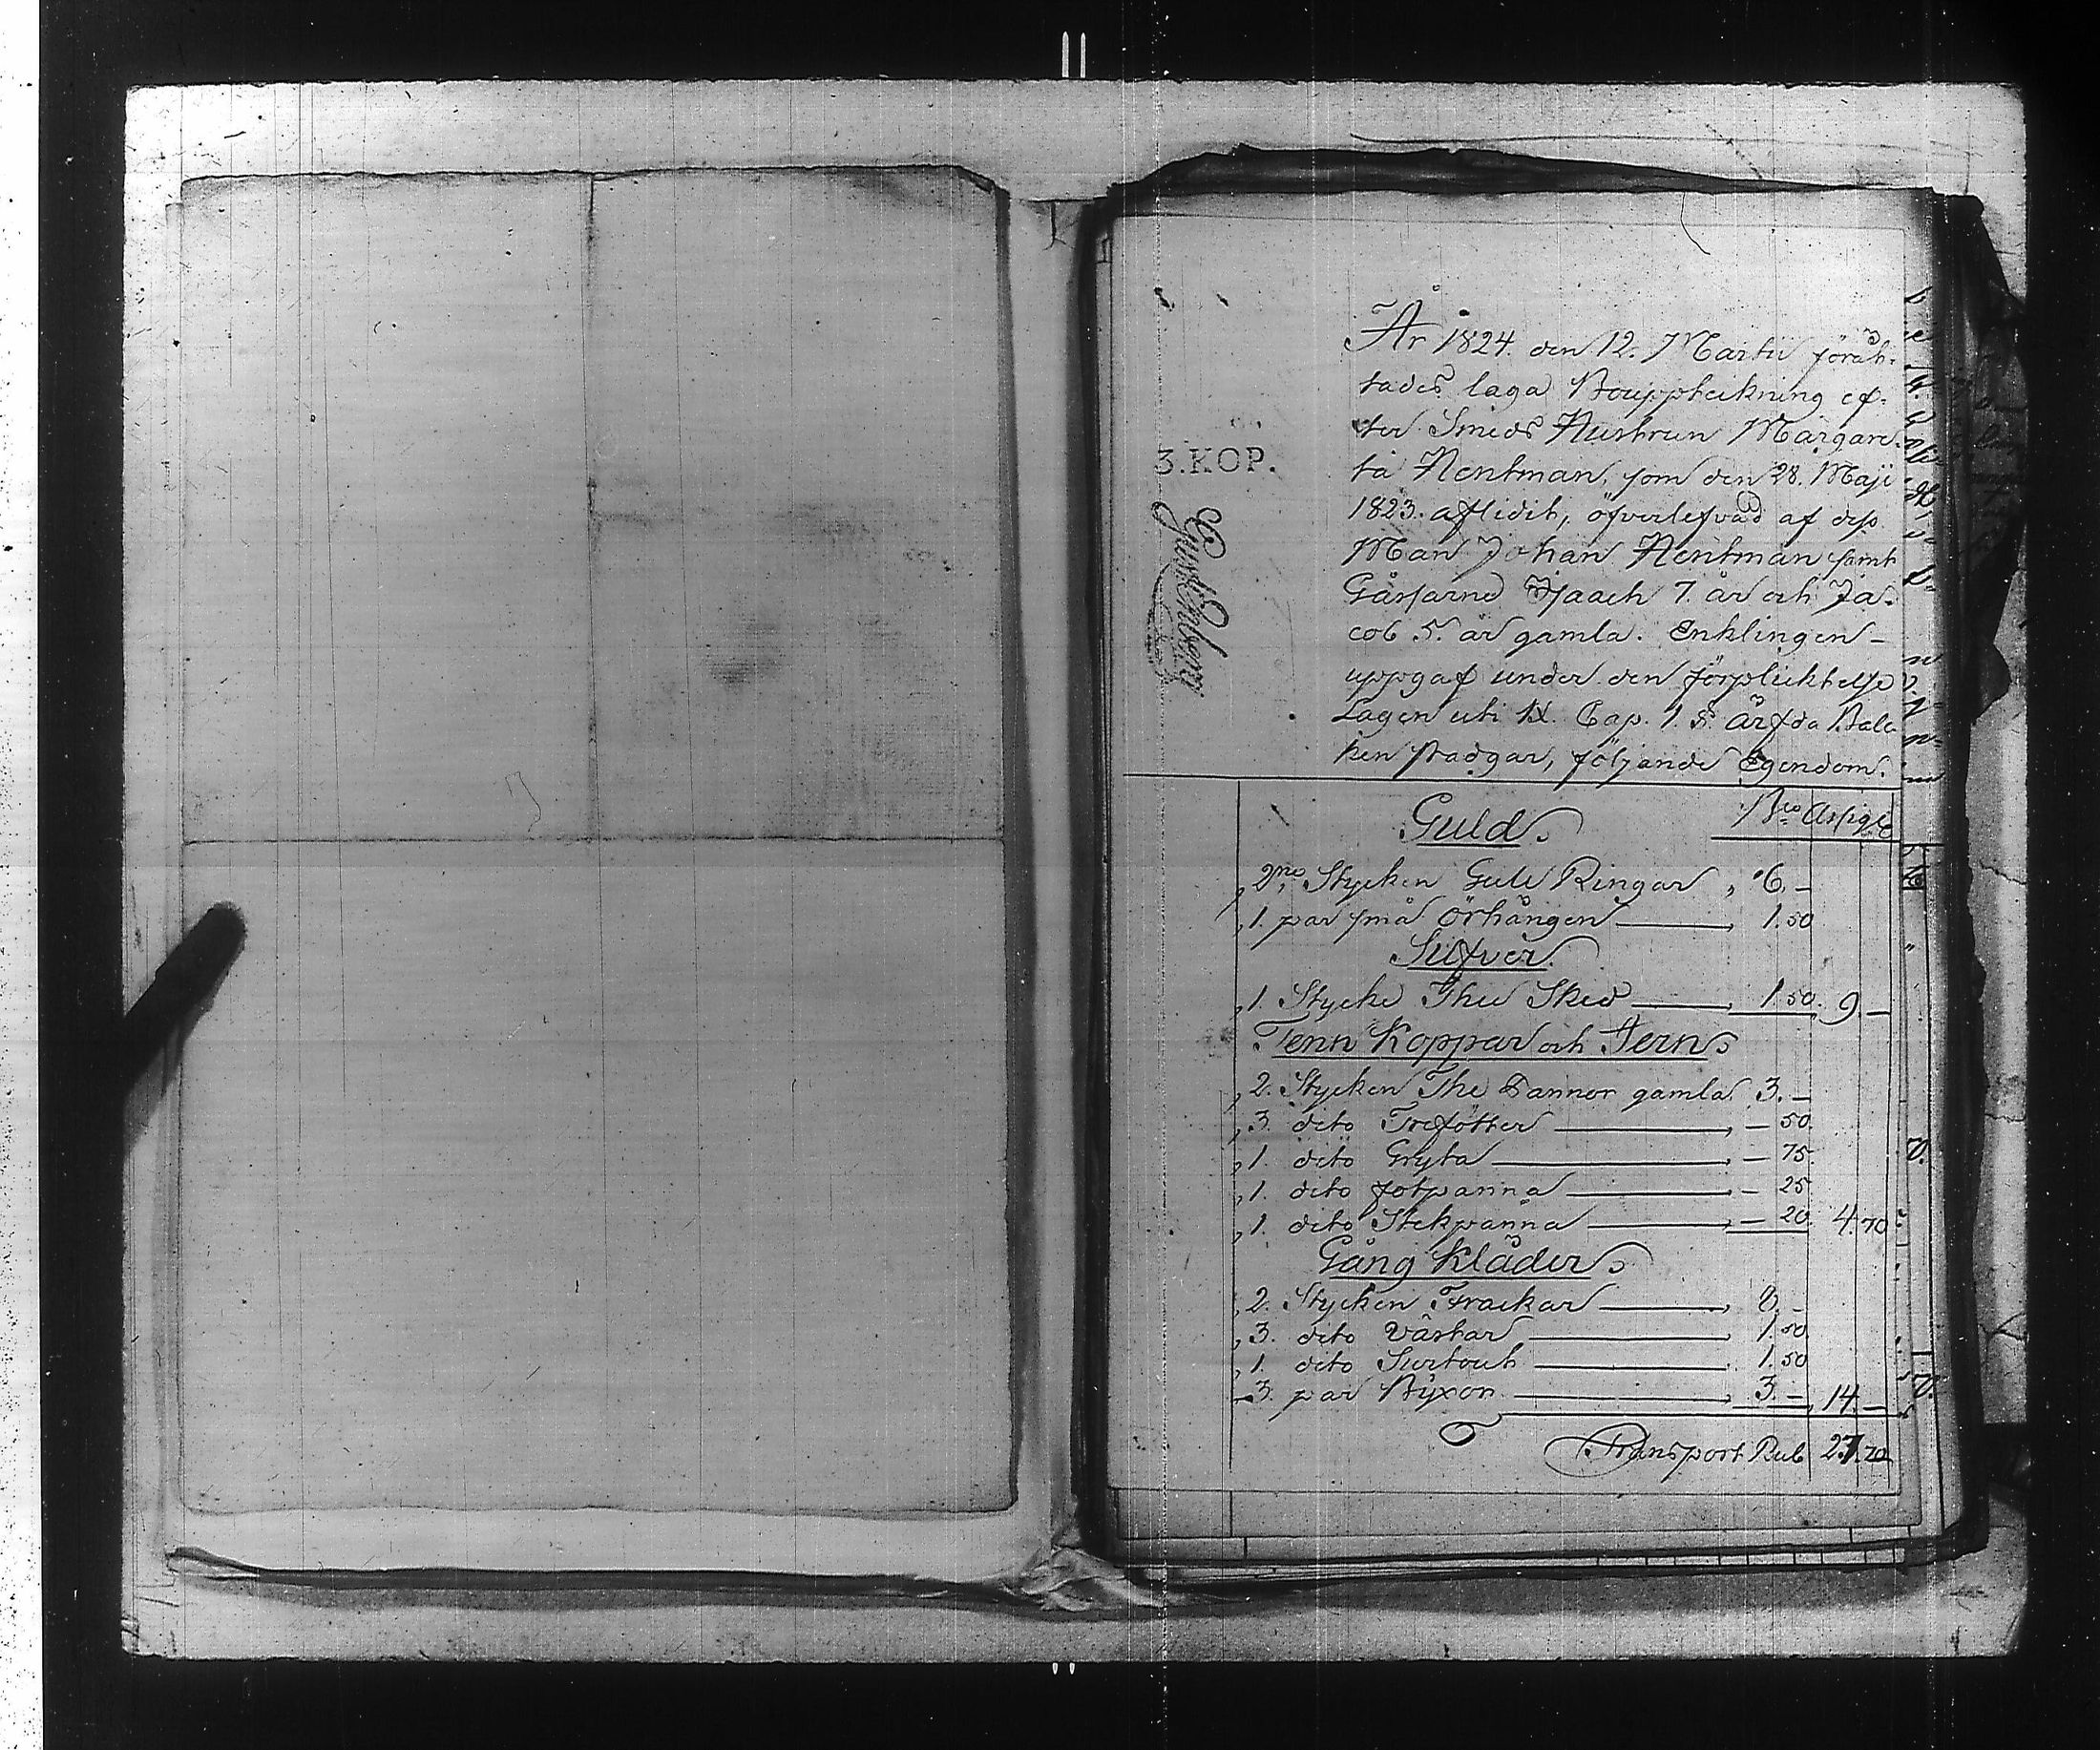 År 1824. den 12. Martii förät-
tades laga Bouppteckning ef-
ter Smeds Hustrun Margare-
ta Nentman, som den 28. Maji
1823. aflidit, öfverlefvad af dess
Man Johan Nentman samt
Gåssarne Isaach 7. år och Ja-
cob 5. år gamla. Enklingen
uppgaf under den förpliktelse
Lagen uti IX. Cap. 1. §. Ärfda Bal-
ken stadgar, följande Egendom.
3.KOP.
Bco Assigr
Guld
2ne Stycken Gull Ringar 6. —
1. par små örhängen 1.50
Silfver
1. Stycke The Sked 1.50. 9. —
Tenn Koppar och Jern
2. Stycken The Kannor gamla 3. —
3. dito Trefötter — 50.
1. dito Gryta — 75.
1. dito fotpanna — 25
1. dito Stekpanna — 20. 4.70
Gång Kläder
2. Stycken Frackar 8. —
3. dito Västar 1.50.
1. dito Surtout 1.50
3. par Byxor 3. — 14. —
Transport Rub 27.70